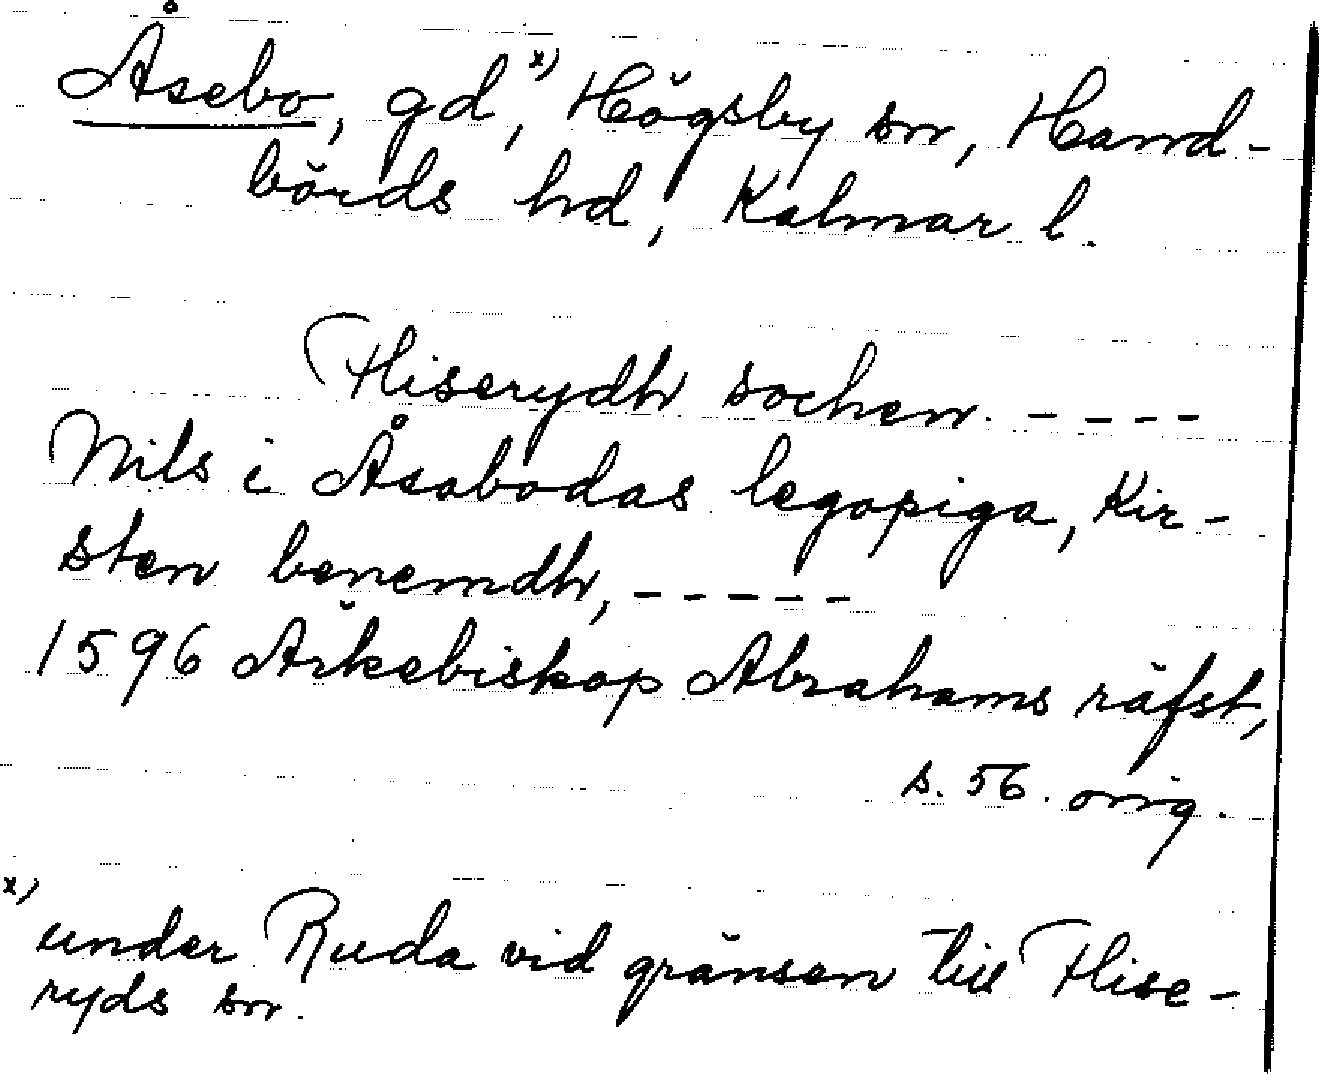 Åsebo, gd,ˣ⁾ Högsby sn, Hand-
börds hd, Kalmar l.
Fliserydh sochen. - - - -
Nils i Åsabodas legopiga, Kir-
sten benemdh, - - - - -
1596 Ärkebiskop Abrahams räfst,
s. 56. orig.
ˣ⁾ under Ruda vid gränsen till Flise-
ryds sn.